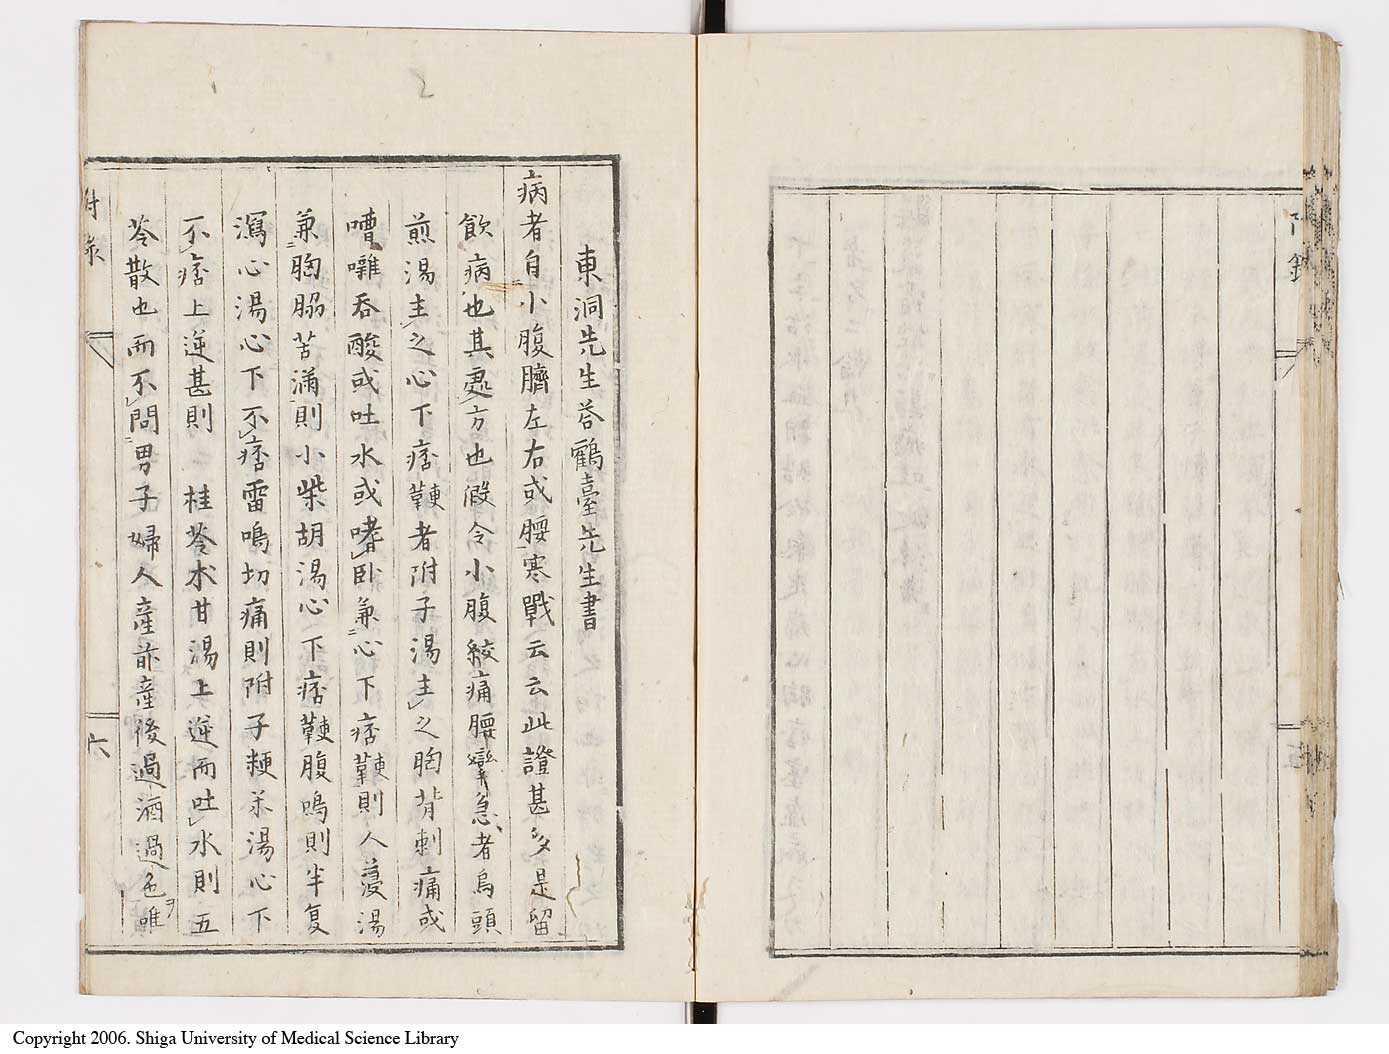 東洞先生荅鶴臺先生書
病者自小腹臍左右或腰寒戰云云此證甚多是留
飲病也其處方也假令小腹絞痛腰攣急者烏頭
煎湯主之心下痞鞕者附子湯主之胸背刺痛或
嘈囃吞酸或吐水或嗜臥兼心下痞鞕則人葠湯
兼胸脇苦滿則小柴胡湯心下痞鞕腹鳴則半夏
瀉心湯心下不痞雷鳴切痛則附子粳米湯心下
不痞上逆甚則 桂苓朮甘湯上逆而吐水則五
苓散也而不問男子婦人產前產後過酒過色唯
附录
六
五
Copyright 2006. Shiga University of Medical Science Library